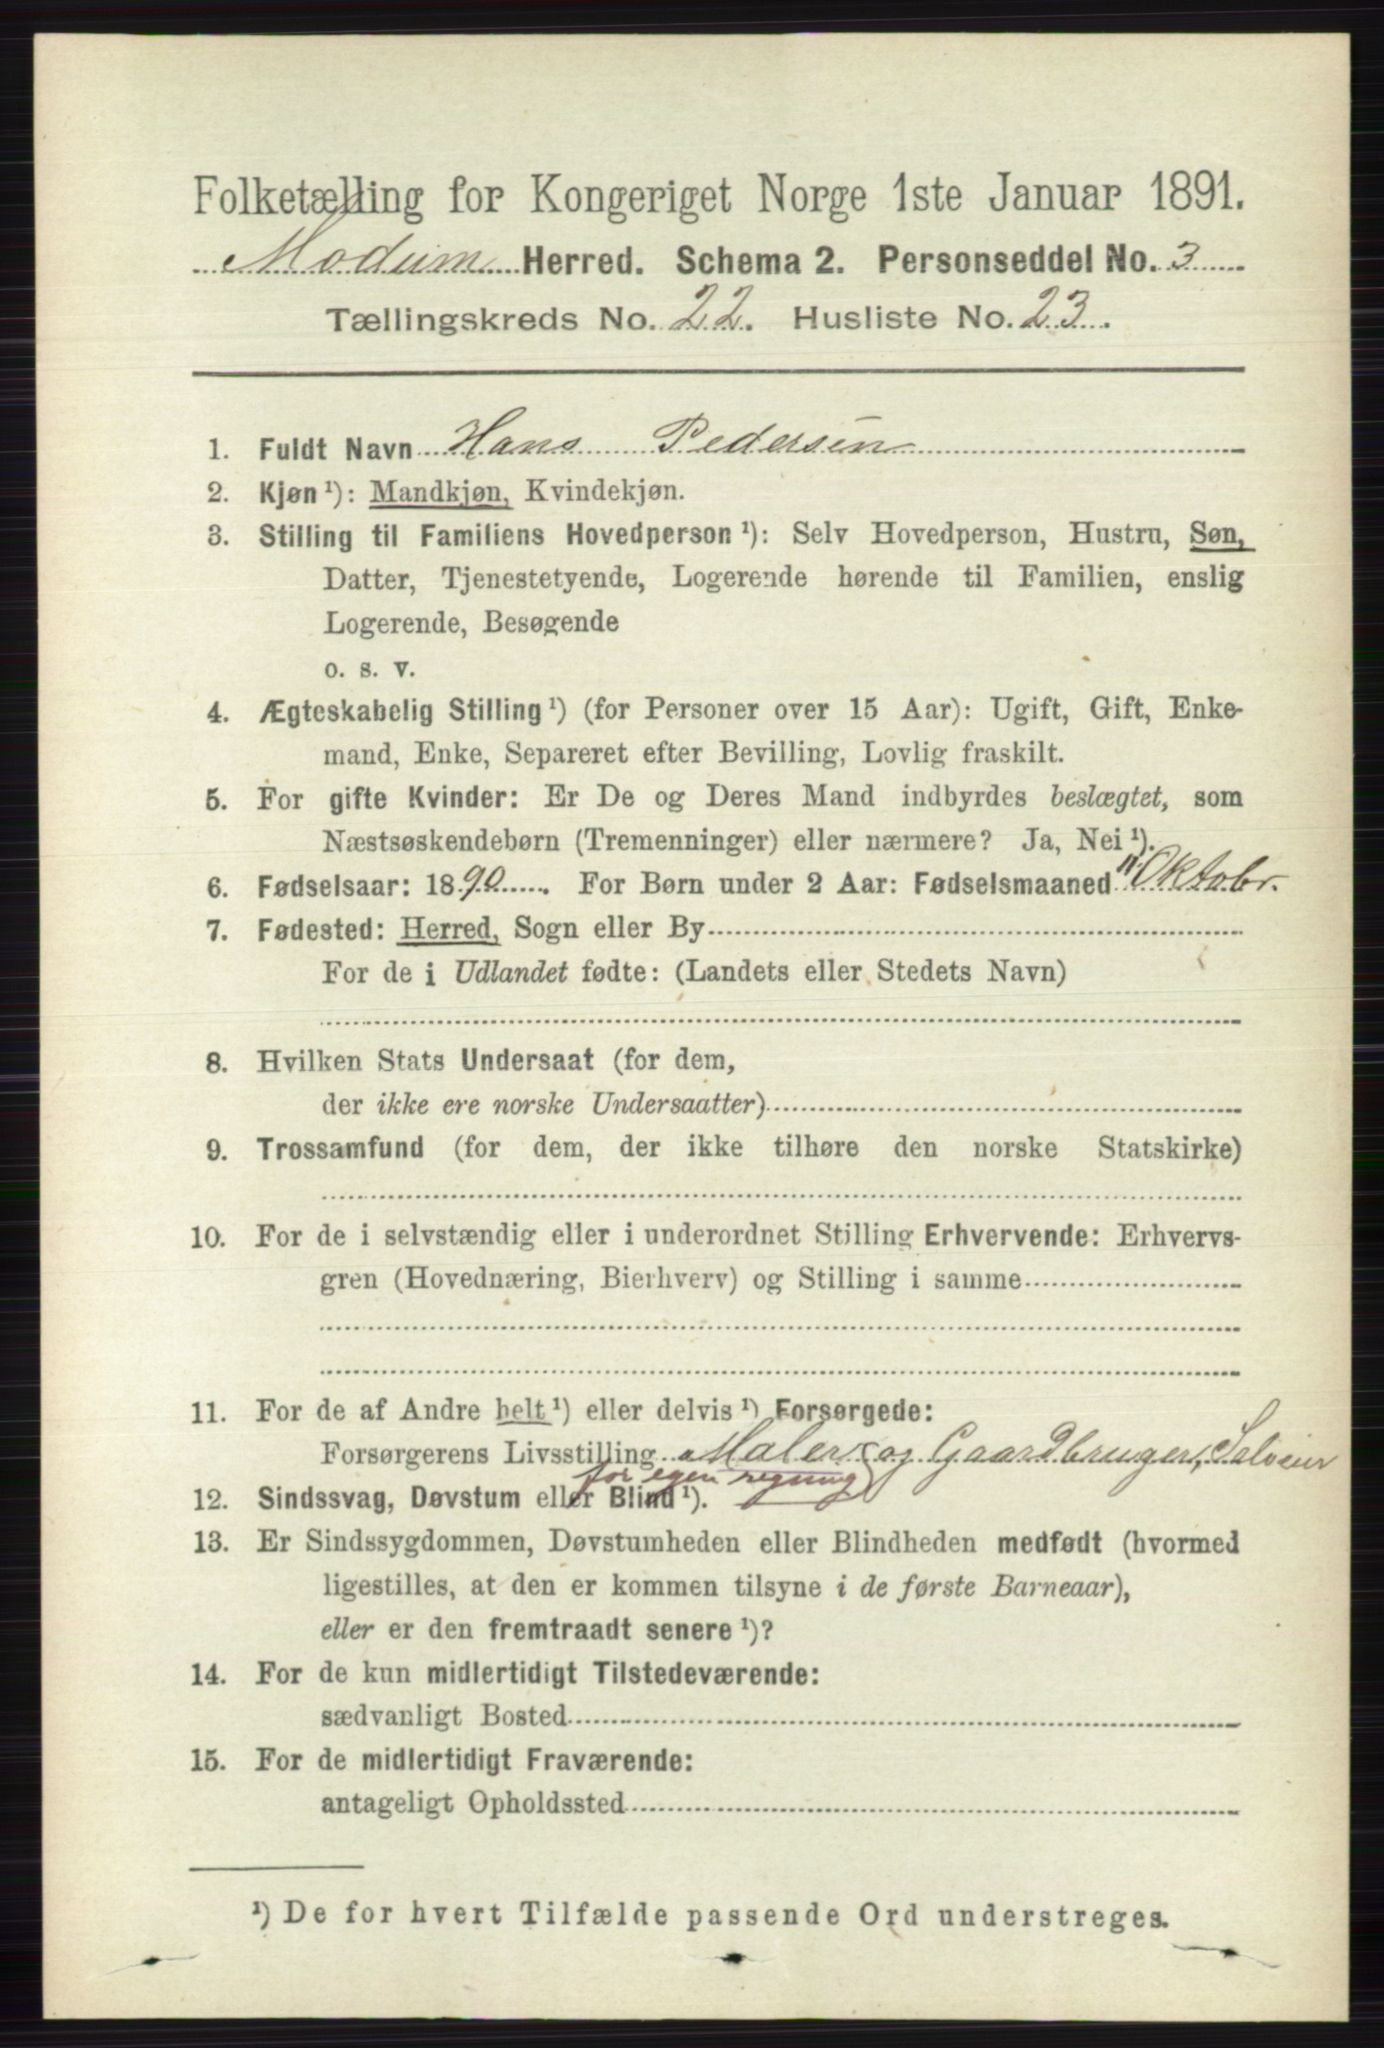 Folketælling for Kongeriget Norge 1ste Januar 1891.
Modum Herred. Schema 2. Personseddel No. 3
Tællingskreds No. 22. Husliste No. 23.
1. Fuldt Navn Hans Pedersen
2. Kjøn ¹): Mandkjøn, Kvindekjøn.
3. Stilling til Familiens Hovedperson ¹): Selv Hovedperson, Hustru, Søn,
Datter, Tjenestetyende, Logerende hørende til Familien, enslig
Logerende, Besøgende
o. s. v.
4. Ægteskabelig Stilling ¹) (for Personer over 15 Aar): Ugift, Gift, Enke-
mand, Enke, Separeret efter Bevilling, Lovlig fraskilt.
5. For gifte Kvinder: Er De og Deres Mand indbyrdes beslægtet, som
Næstsøskendebørn (Tremenninger) eller nærmere? Ja, Nei ¹).
6. Fødselsaar: 1890. For Børn under 2 Aar: Fødselsmaaned Oktobr.
7. Fødested: Herred, Sogn eller By
For de i Udlandet fødte: (Landets eller Stedets Navn)
8. Hvilken Stats Undersaat (for dem,
der ikke ere norske Undersaatter)
9. Trossamfund (for dem, der ikke tilhøre den norske Statskirke)
10. For de i selvstændig eller i underordnet Stilling Erhvervende: Erhvervs-
gren (Hovednæring, Bierhverv) og Stilling i samme
11. For de af Andre helt ¹) eller delvis ¹) Forsørgede:
Forsørgerens Livsstilling Maler og Gaardbruger, Selveier
for egen regning
12. Sindssvag, Døvstum eller Blind ¹).
13. Er Sindssygdommen, Døvstumheden eller Blindheden medfødt (hvormed
ligestilles, at den er kommen tilsyne i de første Barneaar),
eller er den fremtraadt senere ¹)?
14. For de kun midlertidigt Tilstedeværende:
sædvanligt Bosted
15. For de midlertidigt Fraværende:
antageligt Opholdssted
¹) De for hvert Tilfælde passende Ord understreges.